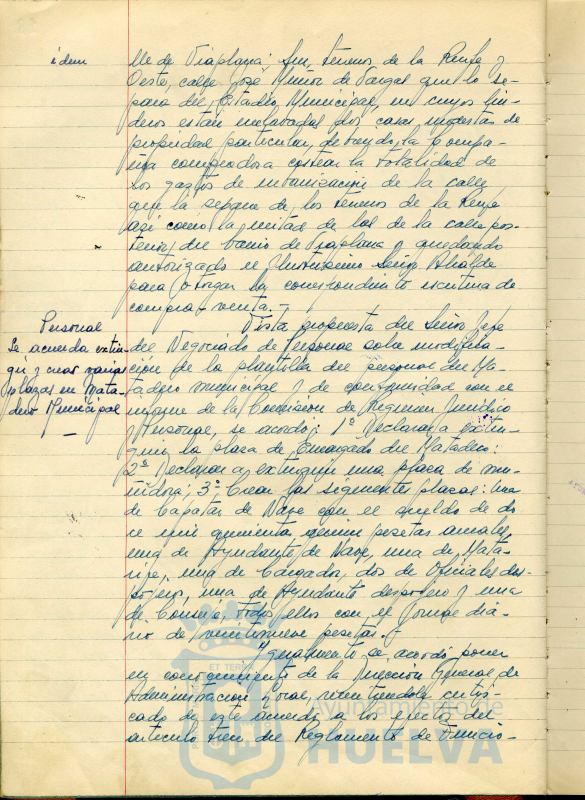 idem
lle de Viaplana; Sur, terrenos de la Renfe y
Oeste, calle José Muñoz de Vargas que lo se-
para del Estadio Municipal, en cuyos lin-
deros están enclavadas dos casas modestas de
propiedad particular, debiendo la Compa-
ñia compradora costear la totalidad de
los gastos de urbanización de la calle
que la separa de los terrenos de la Renfe
así como la mitad de los de la calle pos-
terior del barrio de Viaplana y quedando
autorizado el Ilustrisimo Señor Alcalde
para otorgar la correspondiente escritura de
compra-venta.-
Personal
Se acuerda extin-
guir y crear varias
plazas en Mata-
dero Municipal
Vista propuesta del Señor Jefe
del Negociado de Personal sobre modifica-
ción de la plantilla del personal del Ma-
tadero municipal y de conformidad con el
informe de la Comisión de Regimen Juridico
y Personal, se acordó: 1º Declarar a extin-
guir la plaza de Encargado del Matadero:
2º Declarar a extinguir una plaza de
; 3º Crear las siguientes plazas: Una
de Capataz de Nave con el sueldo de do
ce mil quinientas pesetas anuales
una de Ayudante de Nave, una de Mata-
rife, una de Cargador, dos de Oficiales des-
pojeros, una de Ayudante despojero y una
de Conserje, todos ellos con el jornal dia-
rio de veintinueve pesetas.
Igualmente se acordó poner
en conocimiento de la Dirección General de
Administración Local, remitiendole certifi-
cado de este acuerdo a los efectos del
articulo trece del Reglamento de Funcio-
ET TERRA
Ayuntamiento de
HUELVA